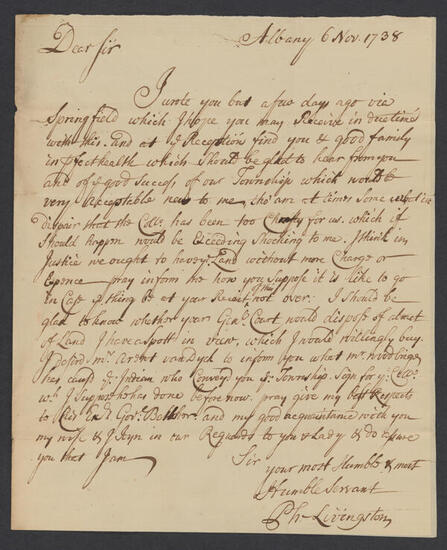 Albany 6 Nov. 1738
Dear Sir
I wrote you but a few days ago via
Springfield which I hope you may Receive in due time
with this. and at ye Reception find you & good family
in pfect health which Should be glad to hear from you
and of ye good Success of our Township which would be
very Acceptable news to me, tho' am at times Some what in
Dispair that the Colle. has been too Crafty for us. which if
Should happen would be Exceeding Shocking to me. I think in
Justice we ought to have ye Land without more Charge or
Expence pray inform me how you Suppose it is like to go
in Case ye thing be at your Receit of this not over: I Should be
glad to know whether your Genll Court would dispose of a tract
of Land I have a Spott in view, which I would willingly buy.
I desired mr. van Dyck to inform you what mr.
has caus'd ye Indian who Convey'd you ye Township. Sign for ye Colle.
wch I Suppose he has done before now. pray give my best Respects
to his Exc. Govr. Belcher. and my good acquaintance with you
my wife & I Joyn in our Regards to you & Lady & do assure
you that I am
Sir
your most Humble & most
Humble Servant
Ph Livingston